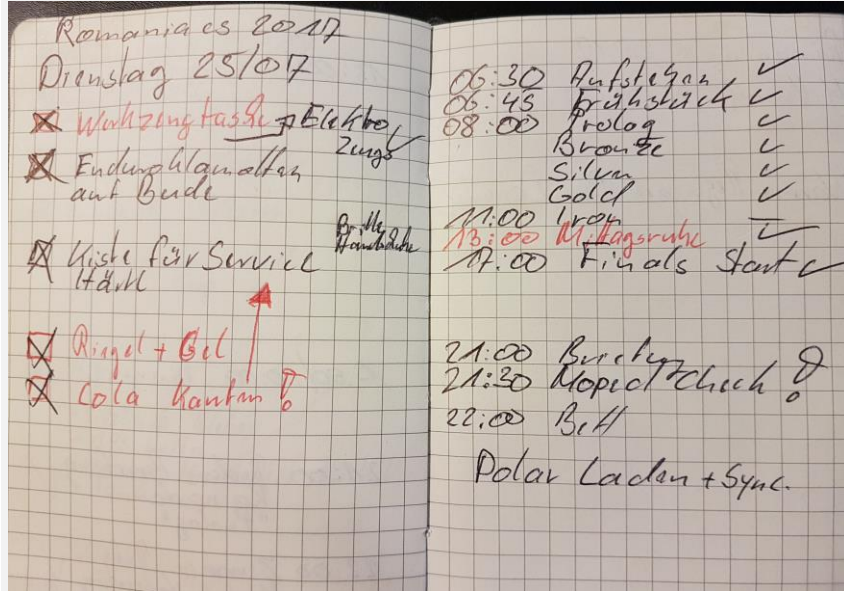 Romaniacs 2017
Dienstag 25/07
Werkzeugtasche → Elektro
Zeugs
Enduroklamotten
auf Bude
Brille
Handschuhe
Kiste für Service
Härtl
Riegel + Gel
Cola Kaufen !
06:30 Aufstehen ✓
06:45 Frühstück ✓
08:00 Prolog ✓
Bronze ✓
Silver ✓
Gold ✓
11:00 Iron —
13:00 Mittagsruhe ✓
17:00 Finals Start ✓
21:00
21:30 Moped Check !
22:00 Bett
Polar Laden + Sync.